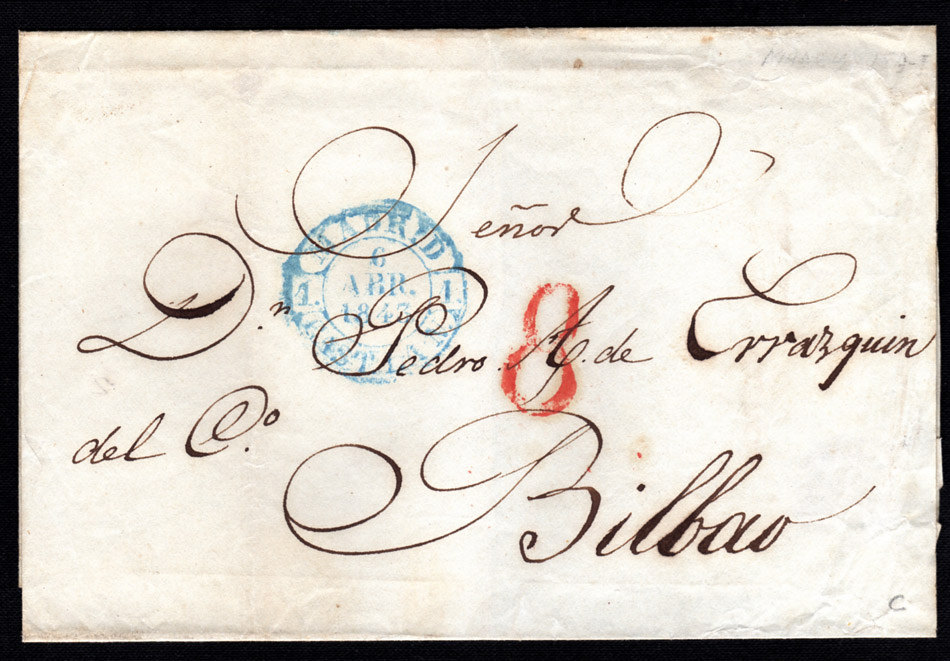 Señor
Dn. Pedro A. de Errazquin
del Co.
Bilbao
MADRID
6
ABR.
1847
1. 1.
8
C